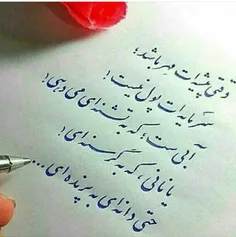 وقتی پیشه‌ات مهر باشد؛
سرمایه‌ات پول نیست!
آبی ست، که به تشنه‌ای می دهی!
یا نانی، که به گرسنه‌ای!
حتی دانه‌ای به پرنده‌ای...